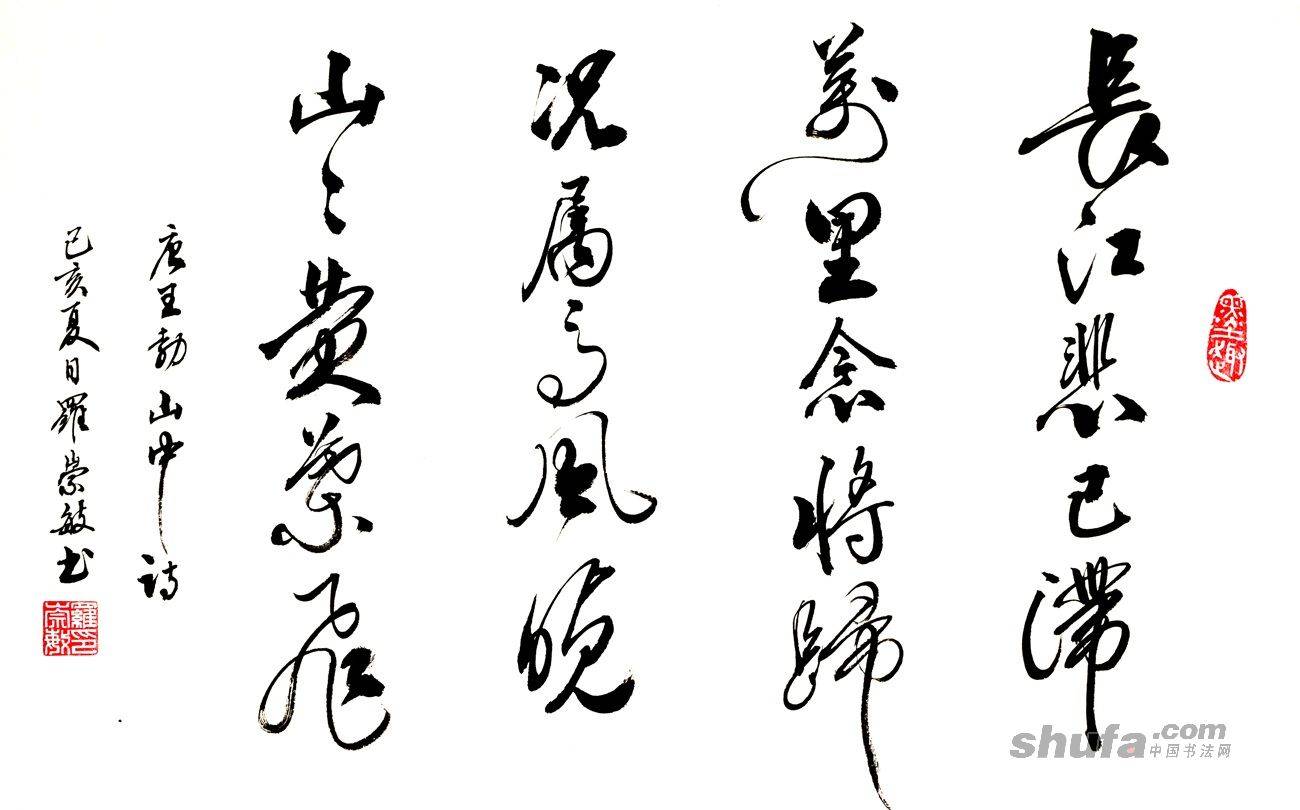 長江悲已滯
萬里念将歸
况属高風晚
山〻黄葉飛
唐王勃山中詩
己亥夏日羅崇敏书
墨趣
羅崇敏印
shufa.com
中国书法网